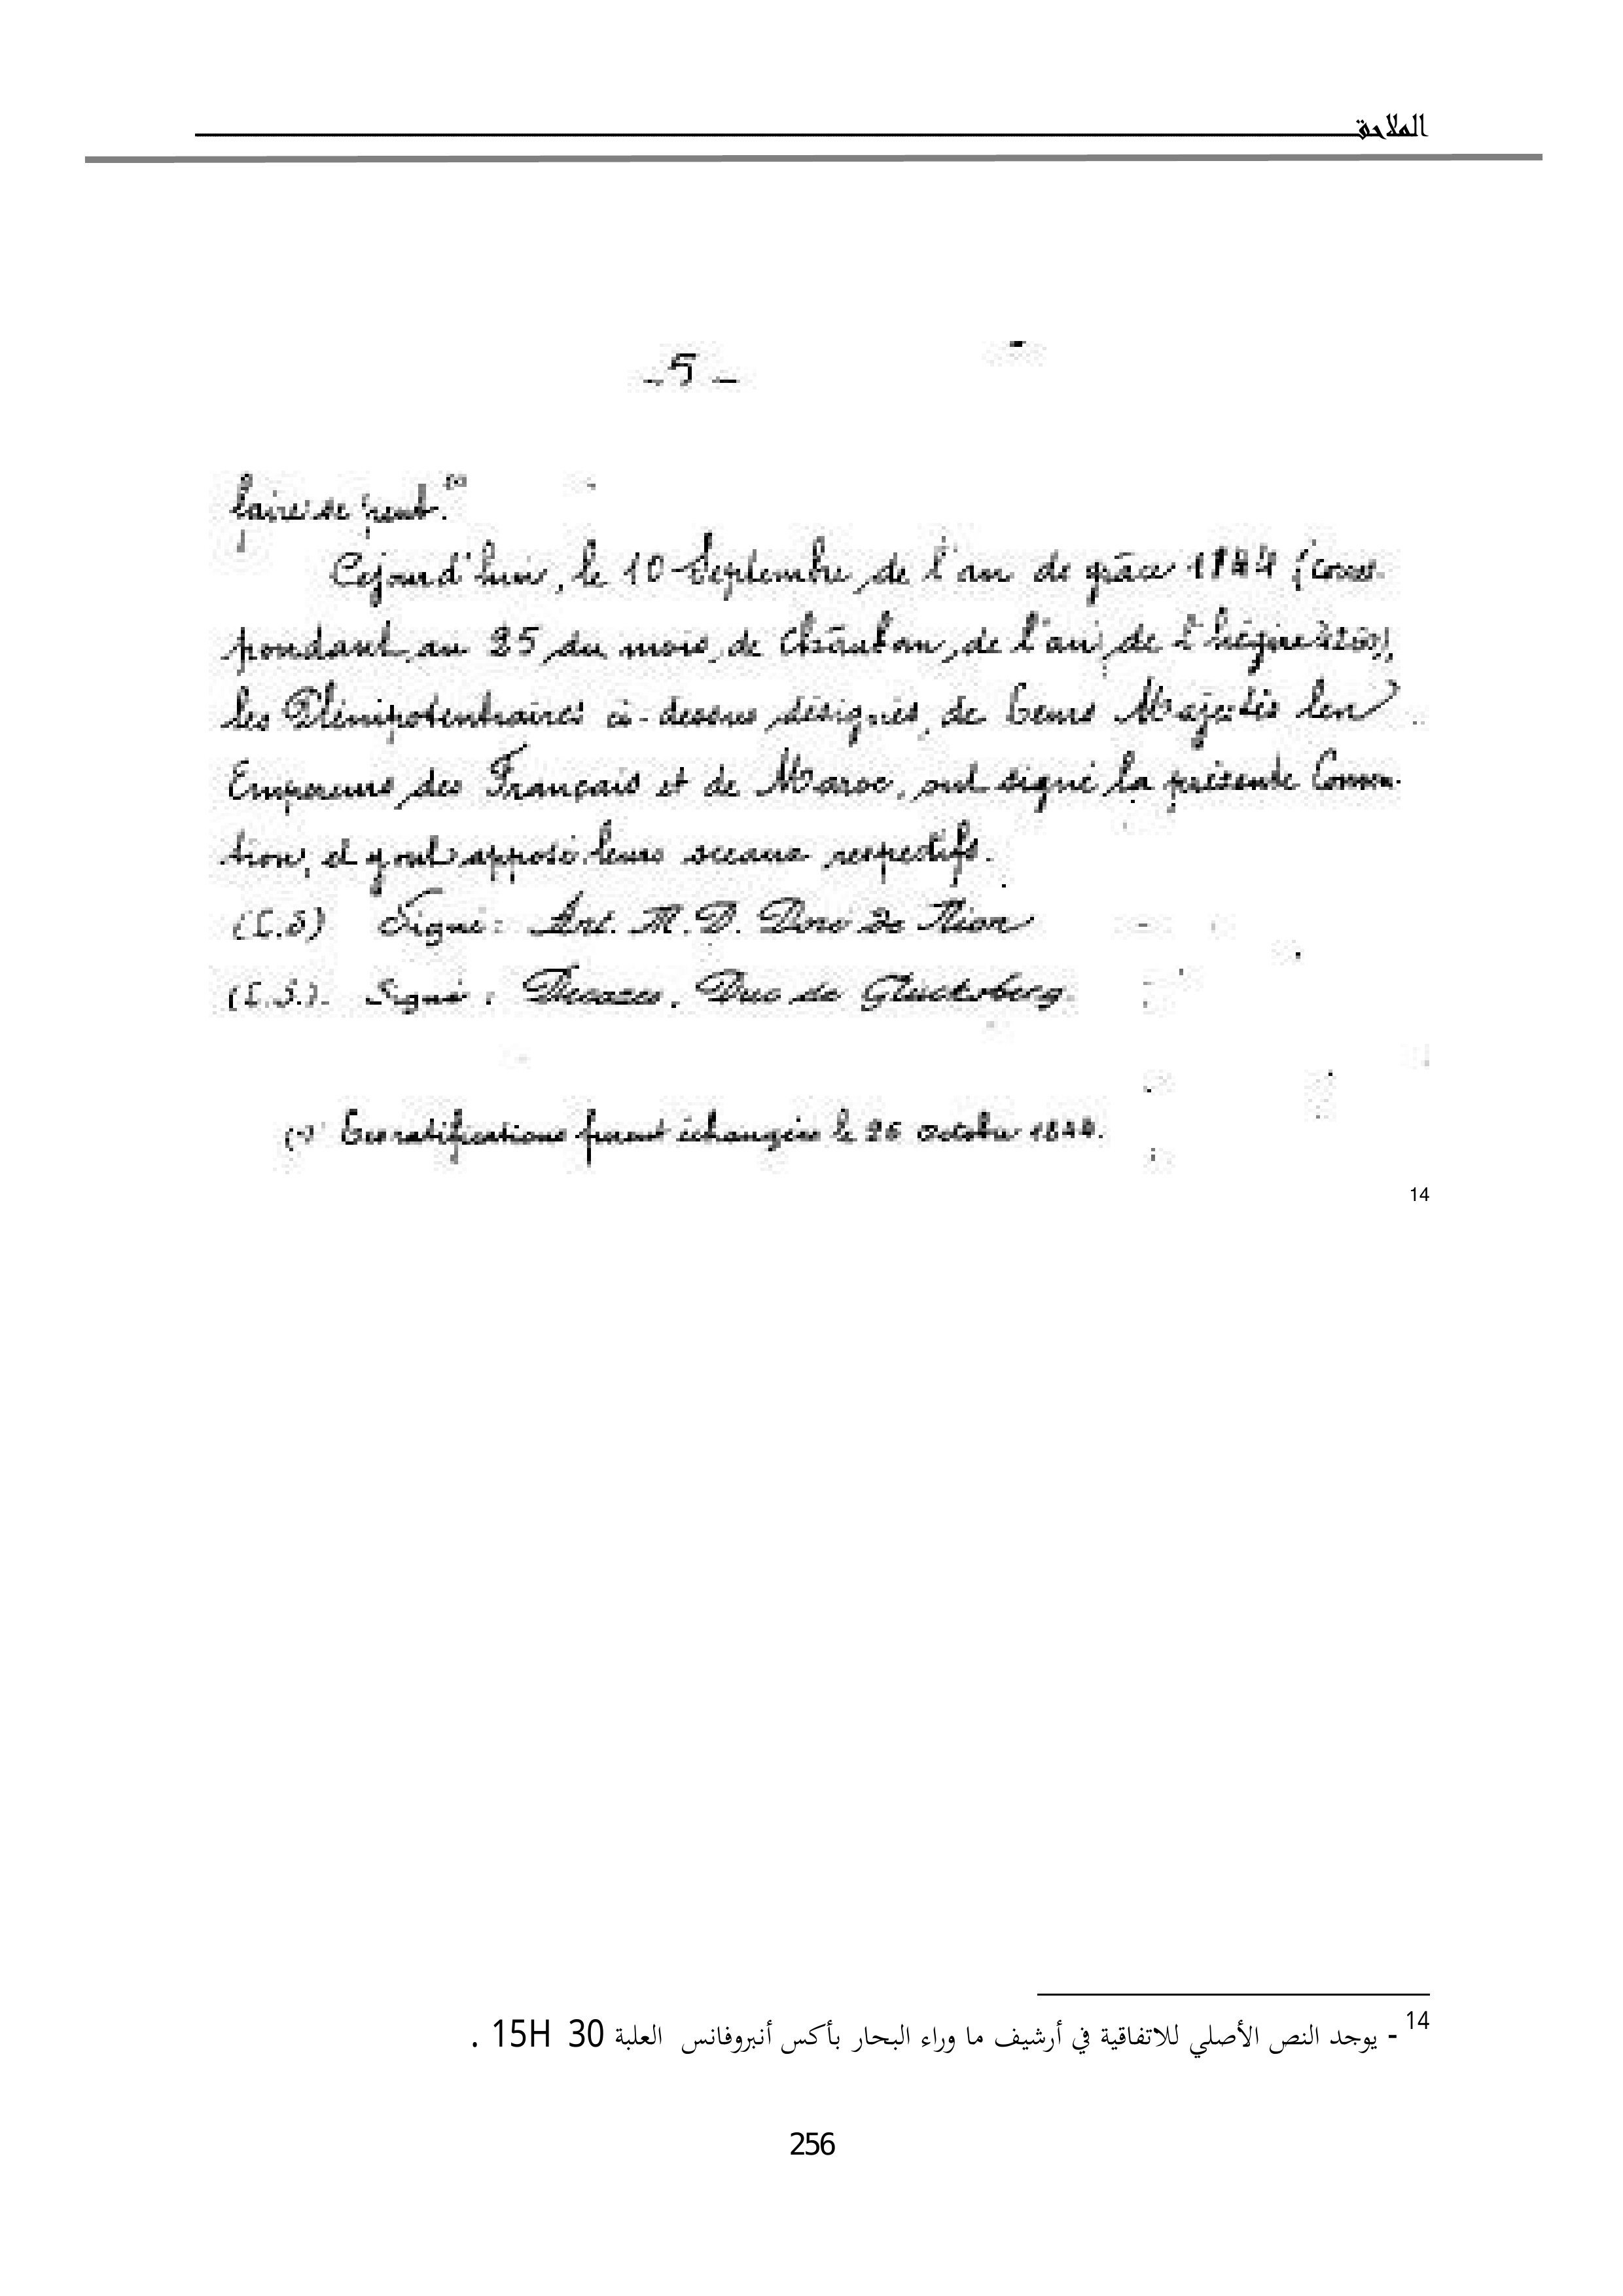 الملاحق
- 5 -
faire se peut. (1)
Cejourd'hui, le 10 Septembre de l'an de grâce 1844 (corres-
pondant au 25 du mois de Châaban, de l'an de l'hégire 1260),
les Plénipotentiaires ci-dessus désignés, de Leurs Majestés les
Empereurs des Français et de Maroc, ont signé la présente Conven-
tion, et y ont apposé leurs sceaux respectifs.
(L.S) Signé: Ant. M. D. Doré de Nion
(L.S.). Signé: Decazes, Duc de Glücksberg.
Les ratifications furent échangées le 26 octobre 1844.
14
14 - يوجد النص الأصلي للاتفاقية في أرشيف ما وراء البحار بأكس أنبروفانس العلبة 15H 30 .
256